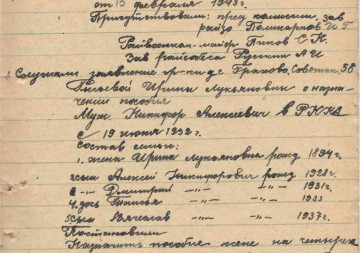 от 13 февраля 1943 г.
Присутствовали: пред комиссии, зав
райзо Поликарпов И Г
Райвоенком-майор Титов С. К.
Зав райсобеса А И
Слушали заявление гр-нке Грахово, Советск, 58
Ирины Лукьяновны о назна-
чении пособия
Муж Никифор Алексеевич в РККА
с 19 июня 1942 г.
Состав семьи:
1. жена Ирина Лукьяновна рожд 1894 г.
2 сын Алексей Никифорович рожд 1928 г.
Дмитрий —„— —„— 1931 г.
4. дочь —„— —„— 1933
5 сын Вячеслав —„— —„— 1937 г.
Постановили
Назначить пособие жене на четырех